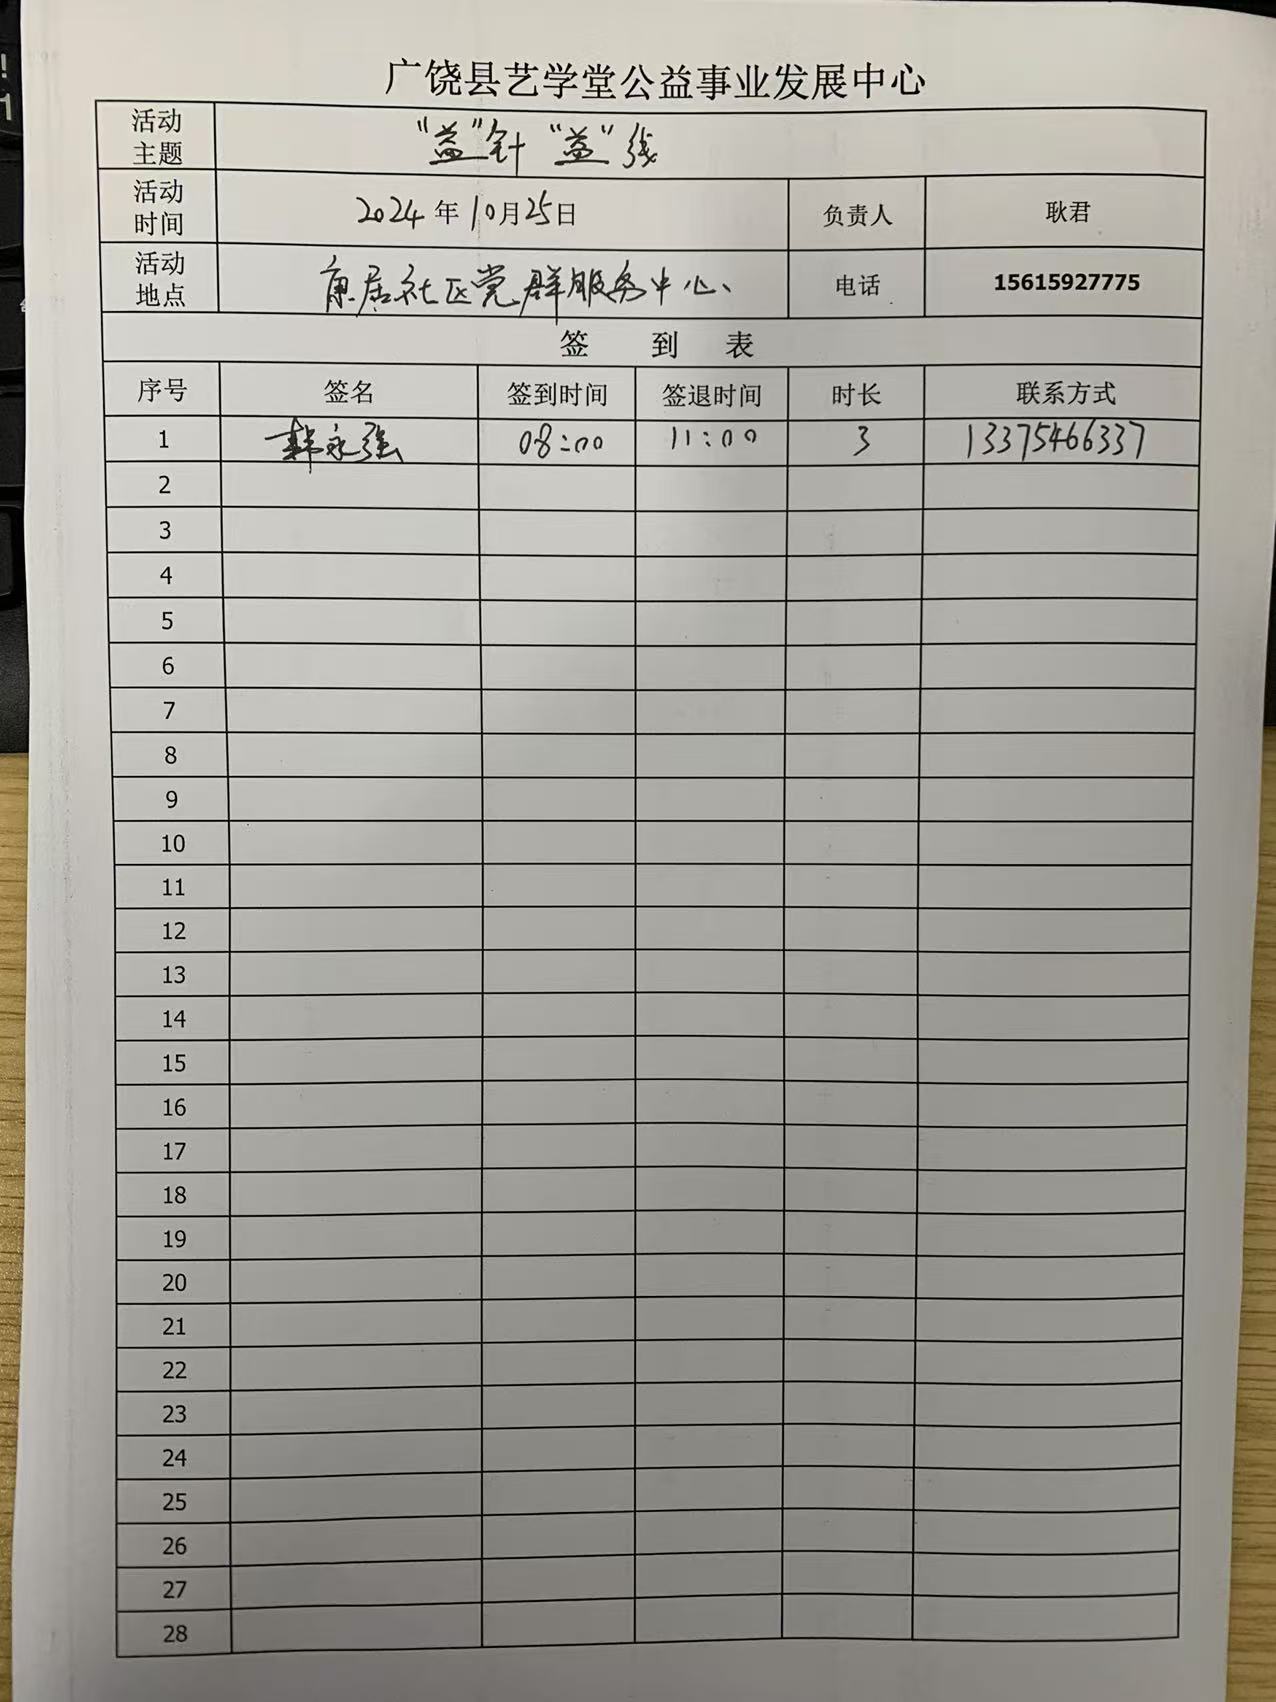 广饶县艺学堂公益事业发展中心
活动主题 “益”针“益”线
活动时间 2024年10月25日 负责人 耿君
活动地点 康居社区党群服务中心 电话 15615927775
签 到 表
序号 签名 签到时间 签退时间 时长 联系方式
1 韩永强 08:00 11:00 3 13375466337
2
3
4
5
6
7
8
9
10
11
12
13
14
15
16
17
18
19
20
21
22
23
24
25
26
27
28